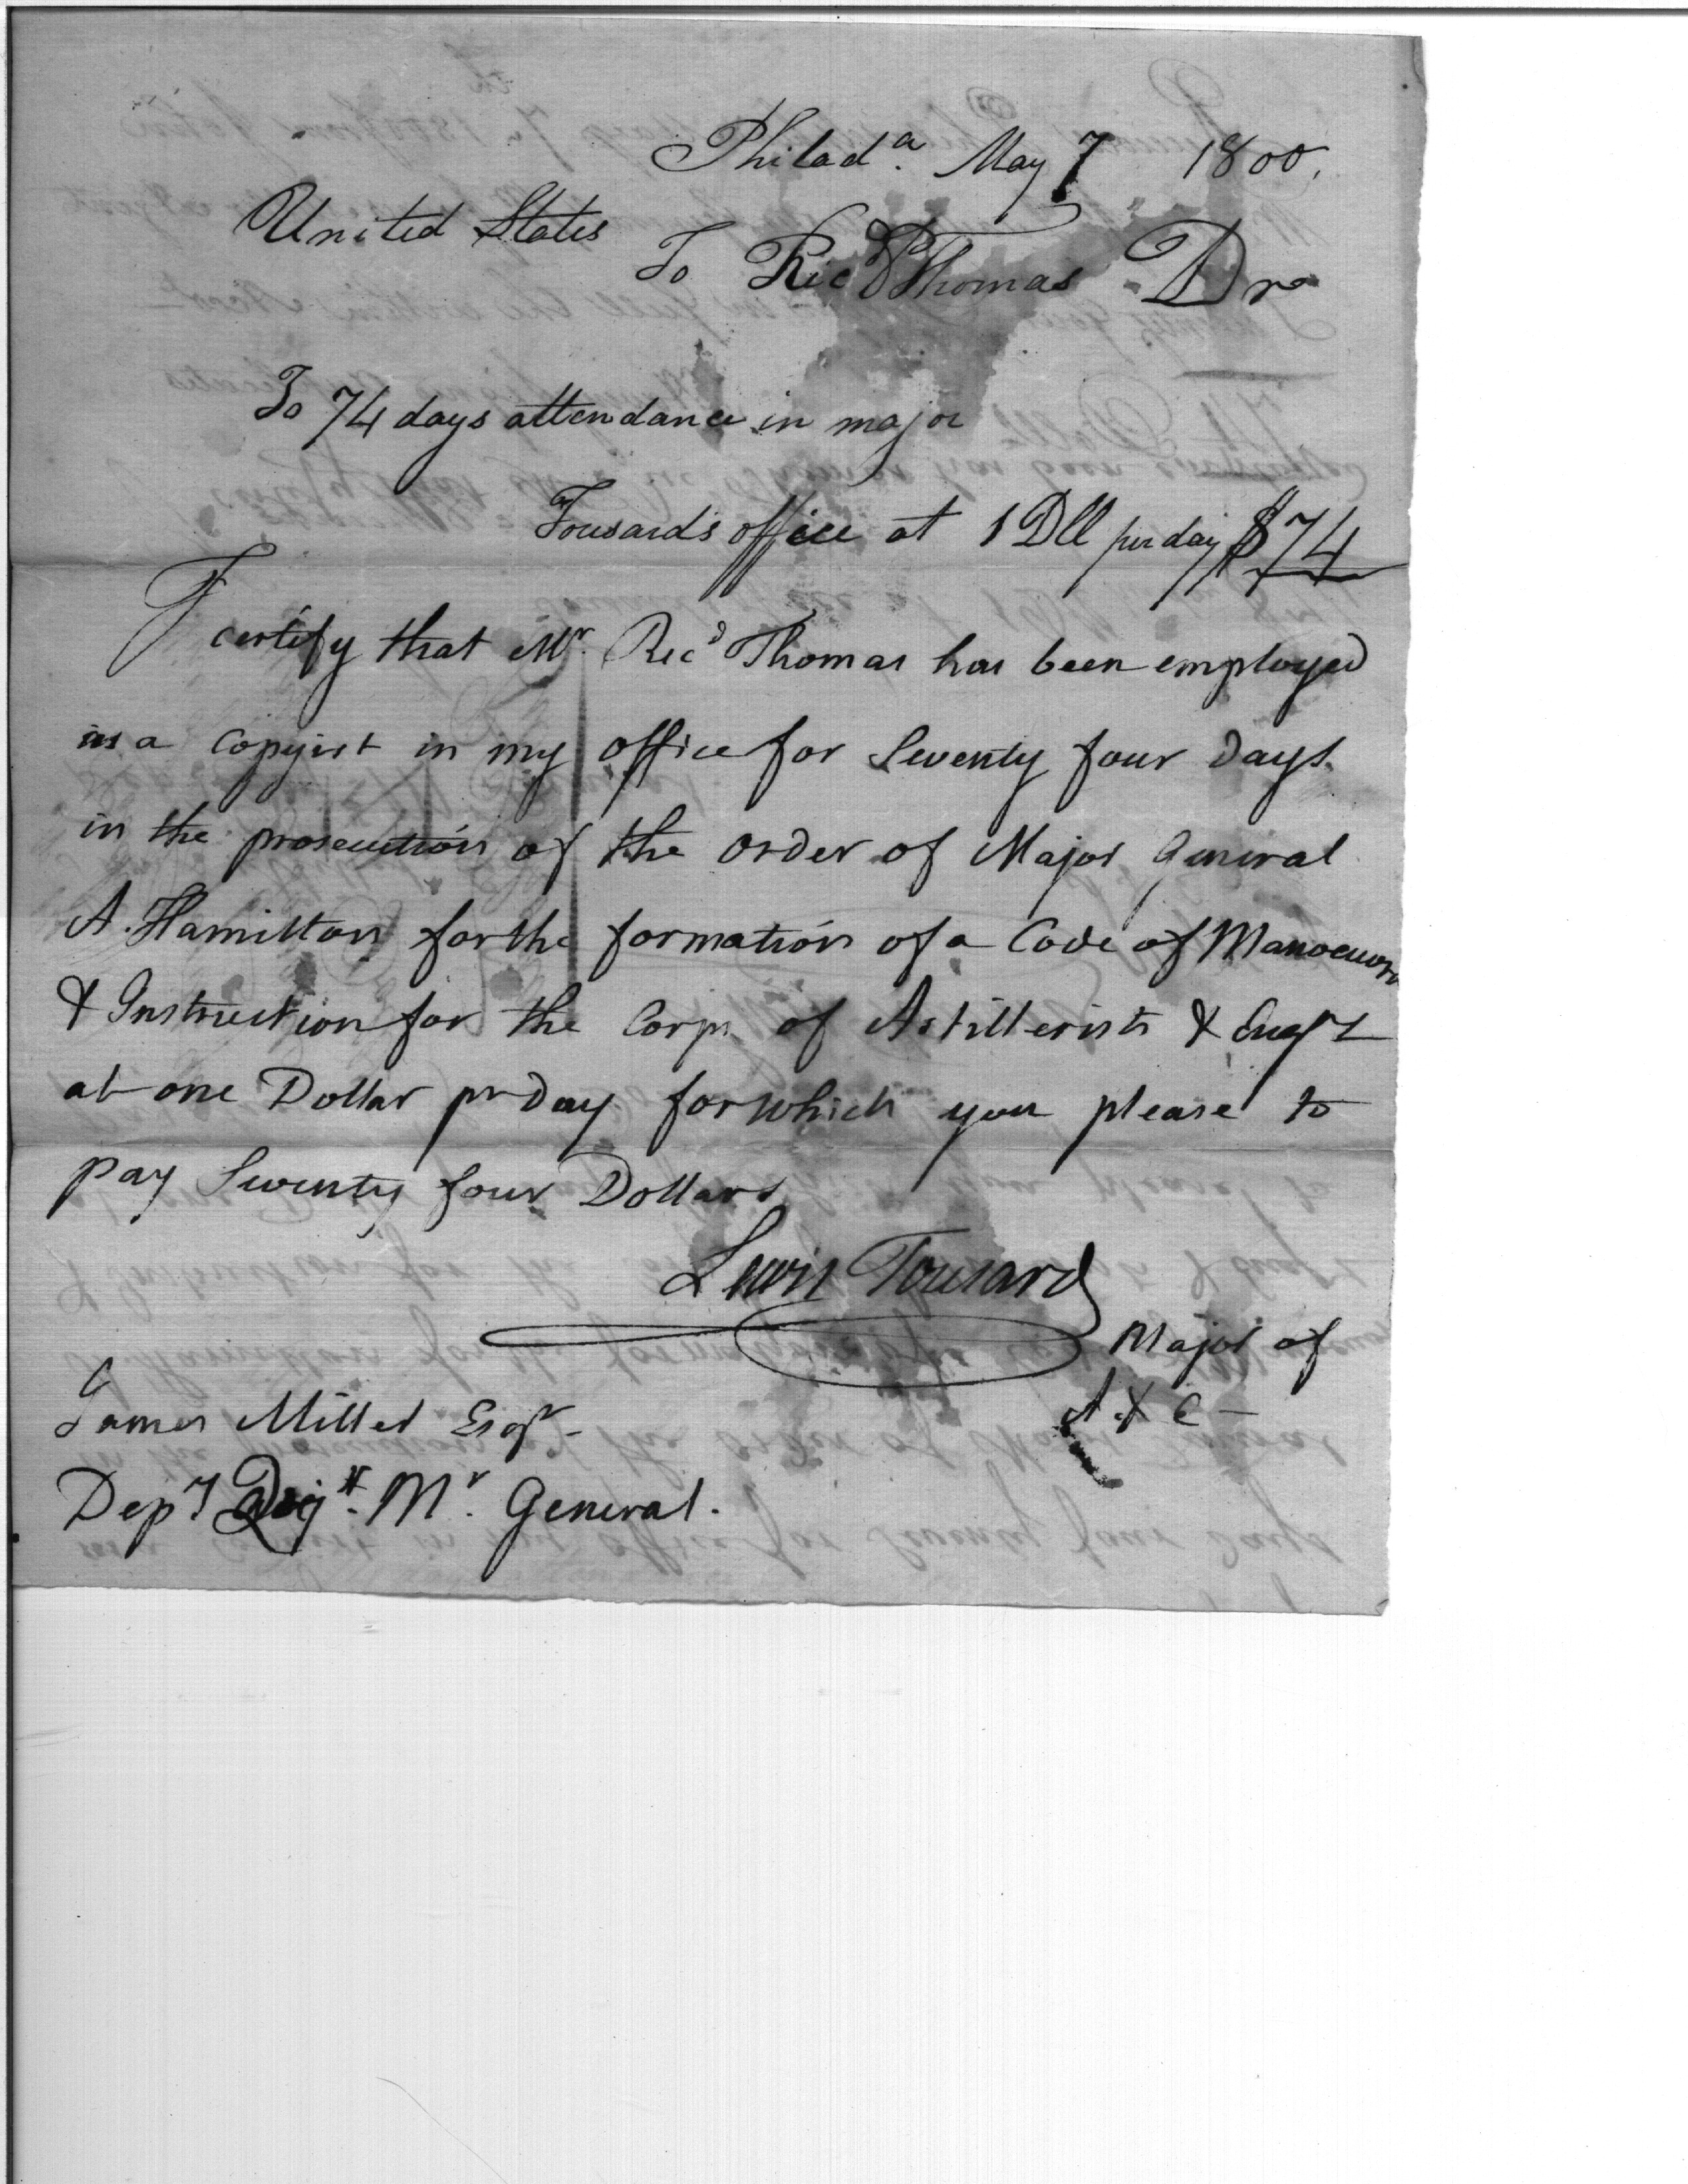 Philad^a. May 7 1800.
United States
To Ric^d Thomas Dr
To 74 days attendance in major
Tousards office at 1 Dll per day $74
I certify that Mr. Ric^d Thomas has been employed
as a Copyist in my office for Seventy four days
in the prosecution of the order of Major General
A. Hamilton for the formation of a Code of Manoeuvre
& Instruction for the Corps of Artillerists & Eng^rs
at one Dollar pr Day for which you please to
pay Seventy four Dollars
Lewis Tousard
Major of
A & E
James Miller Esqr
Dep^y Qr M^r. General.